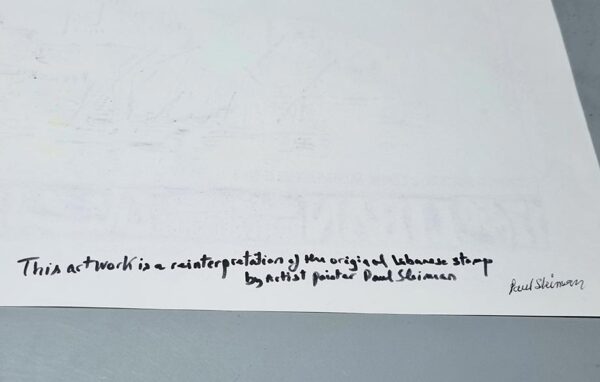 This artwork is a reinterpretation of the original Lebanese stamp
by Artist painter Paul Sleiman
Paul Sleiman